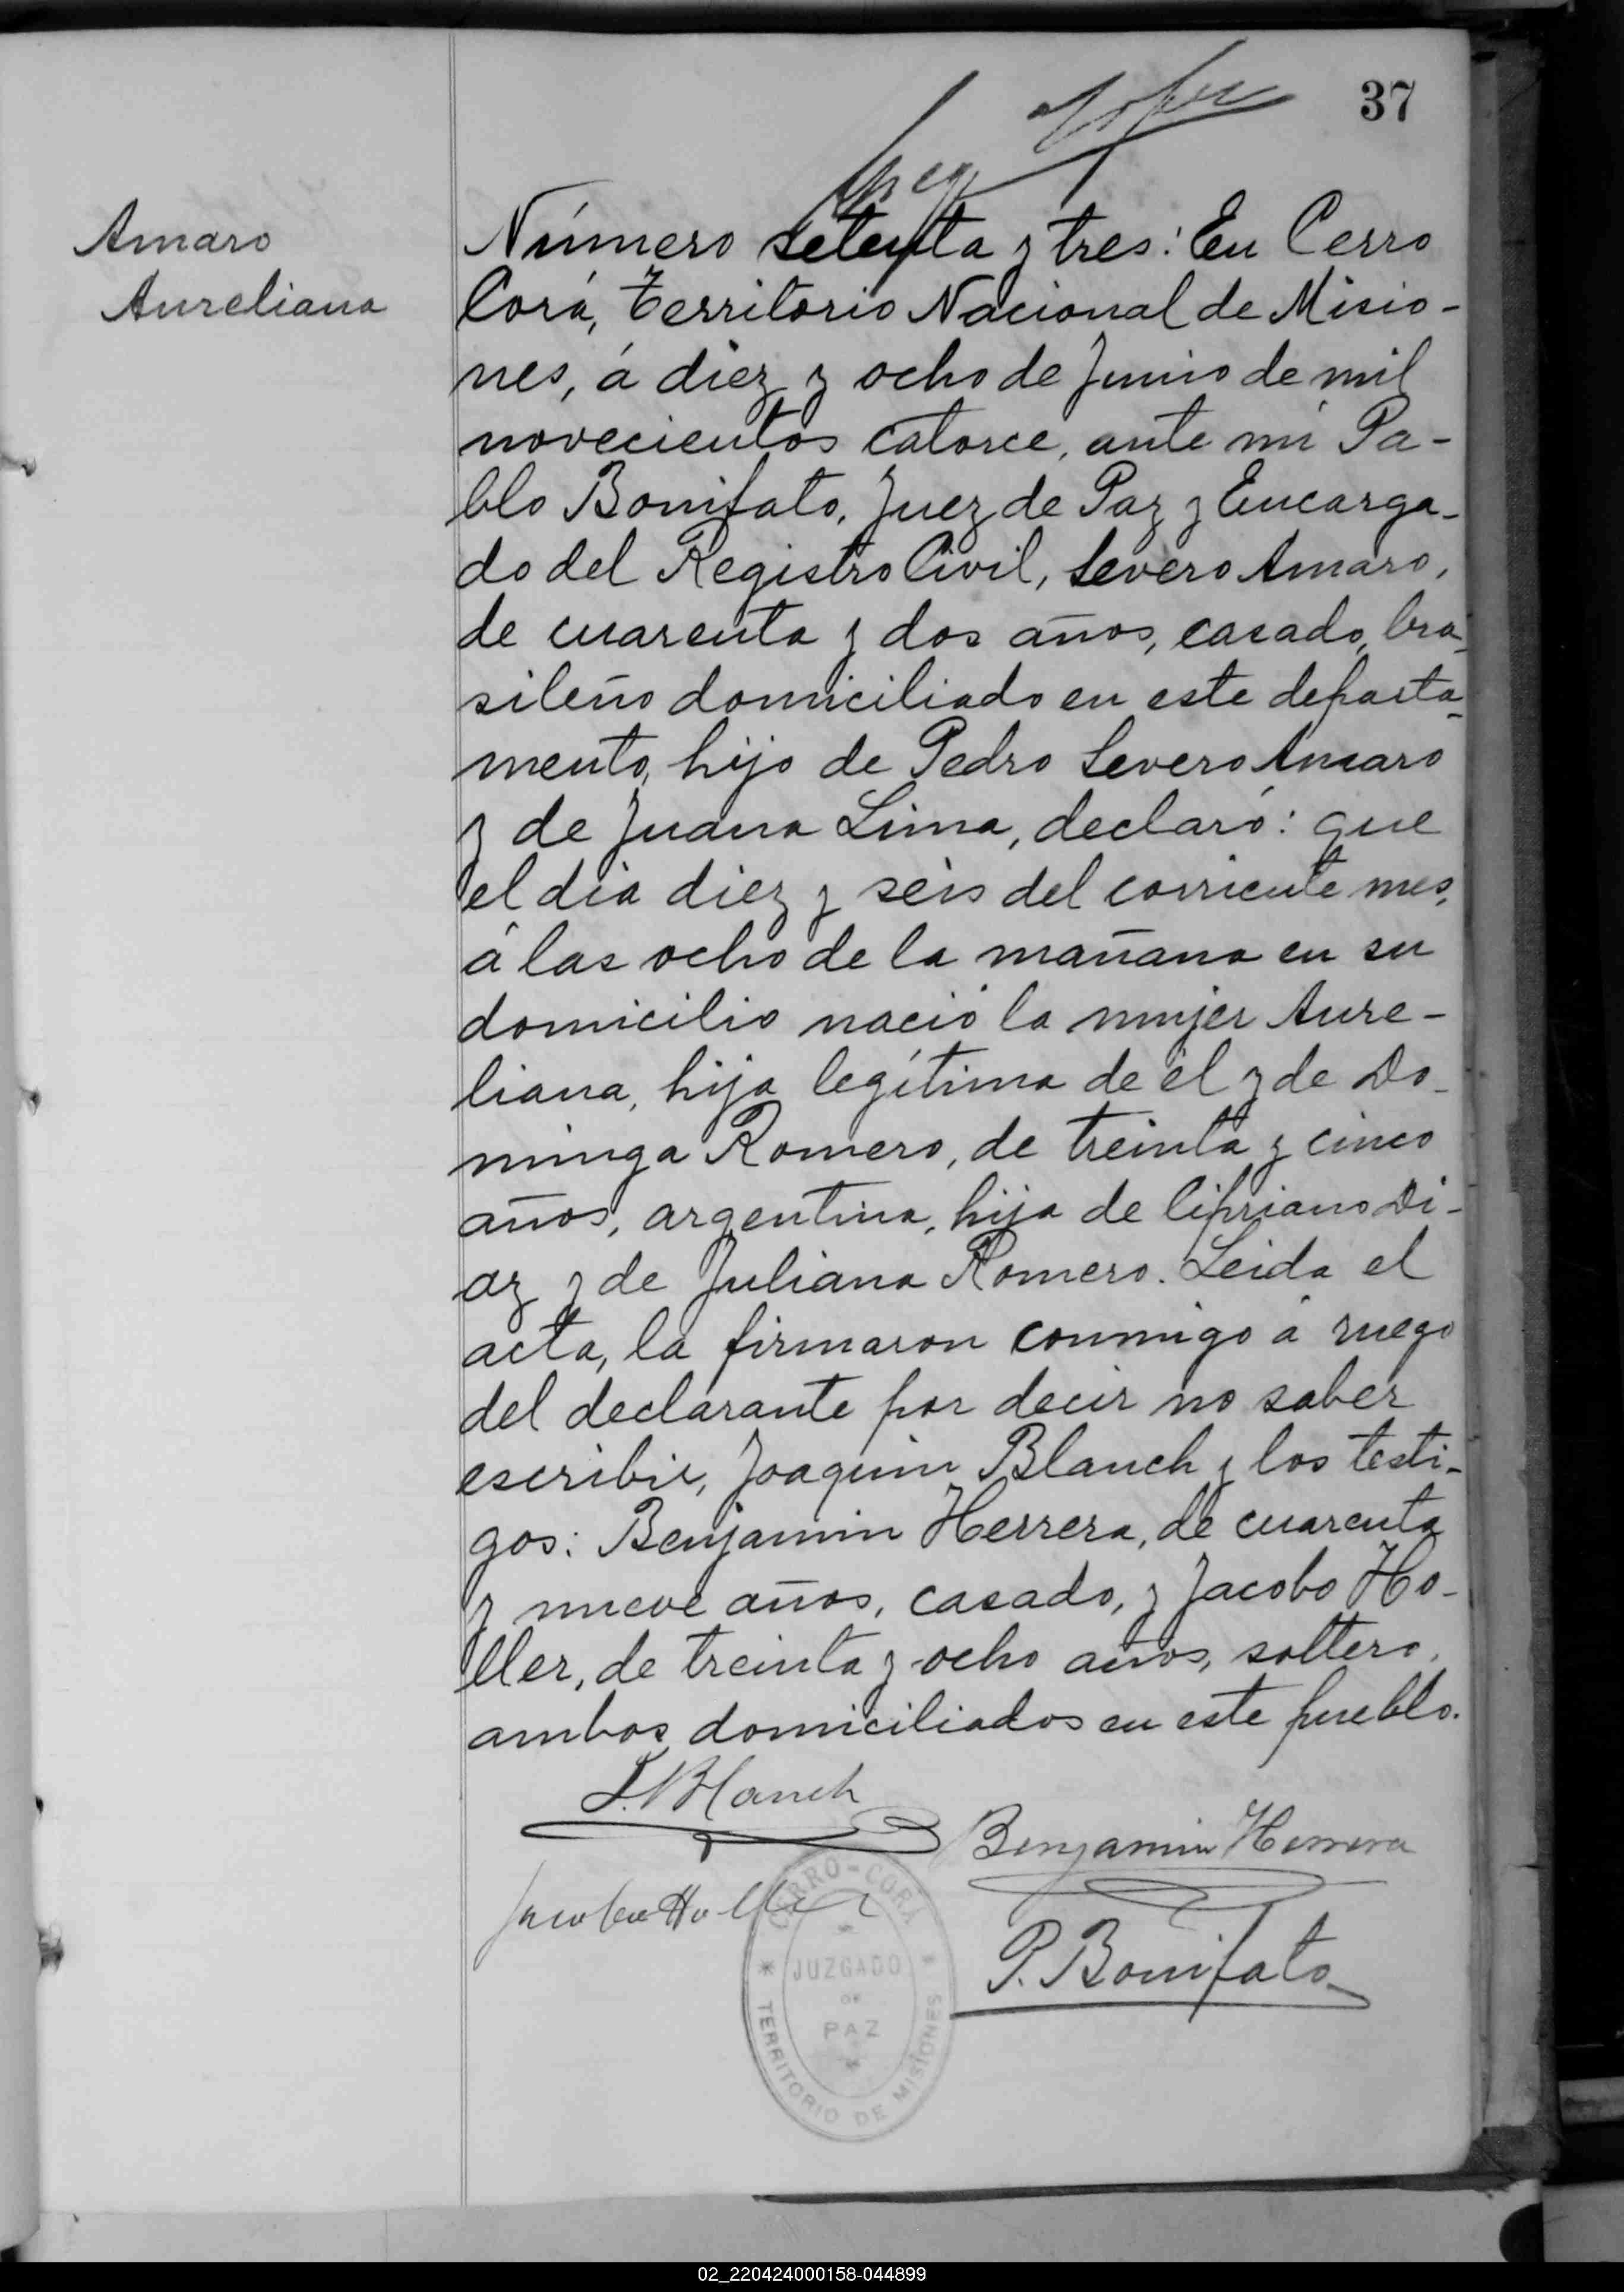 37
Amaro
Aureliana
Número setenta y tres: En Cerro
Corá, Territorio Nacional de Misio-
nes, á diez y ocho de Junio de mil
novecientos catorce, ante mí Pa-
blo Bonifato, Juez de Paz y Encarga-
do del Registro Civil, Severo Amaro,
de cuarenta y dos años, casado, bra-
sileño domiciliado en este departa-
mento, hijo de Pedro Severo Amaro
y de Juana Lima, declaró: que
el día diez y seis del corriente mes,
á las ocho de la mañana en su
domicilio nació la mujer Aure-
liana, hija legítima de él y de Do-
minga Romero, de treinta y cinco
años, argentina, hija de Cipriano Di-
az y de Juliana Romero. Leida el
acta, la firmaron conmigo á ruego
del declarante por decir no saber
escribir, Joaquin Blanch y los testi-
gos: Benjamin Herrera, de cuarenta
y nueve años, casado, y Jacobo Ho-
ller, de treinta y ocho años, soltero,
ambos domiciliados en este pueblo.
J. Blanch
Benjamin Herrera
Jacobo Holler
P. Bonifato
CERRO-CORÁ
JUZGADO
DE
PAZ
TERRITORIO DE MISIONES
02_220424000158-044899